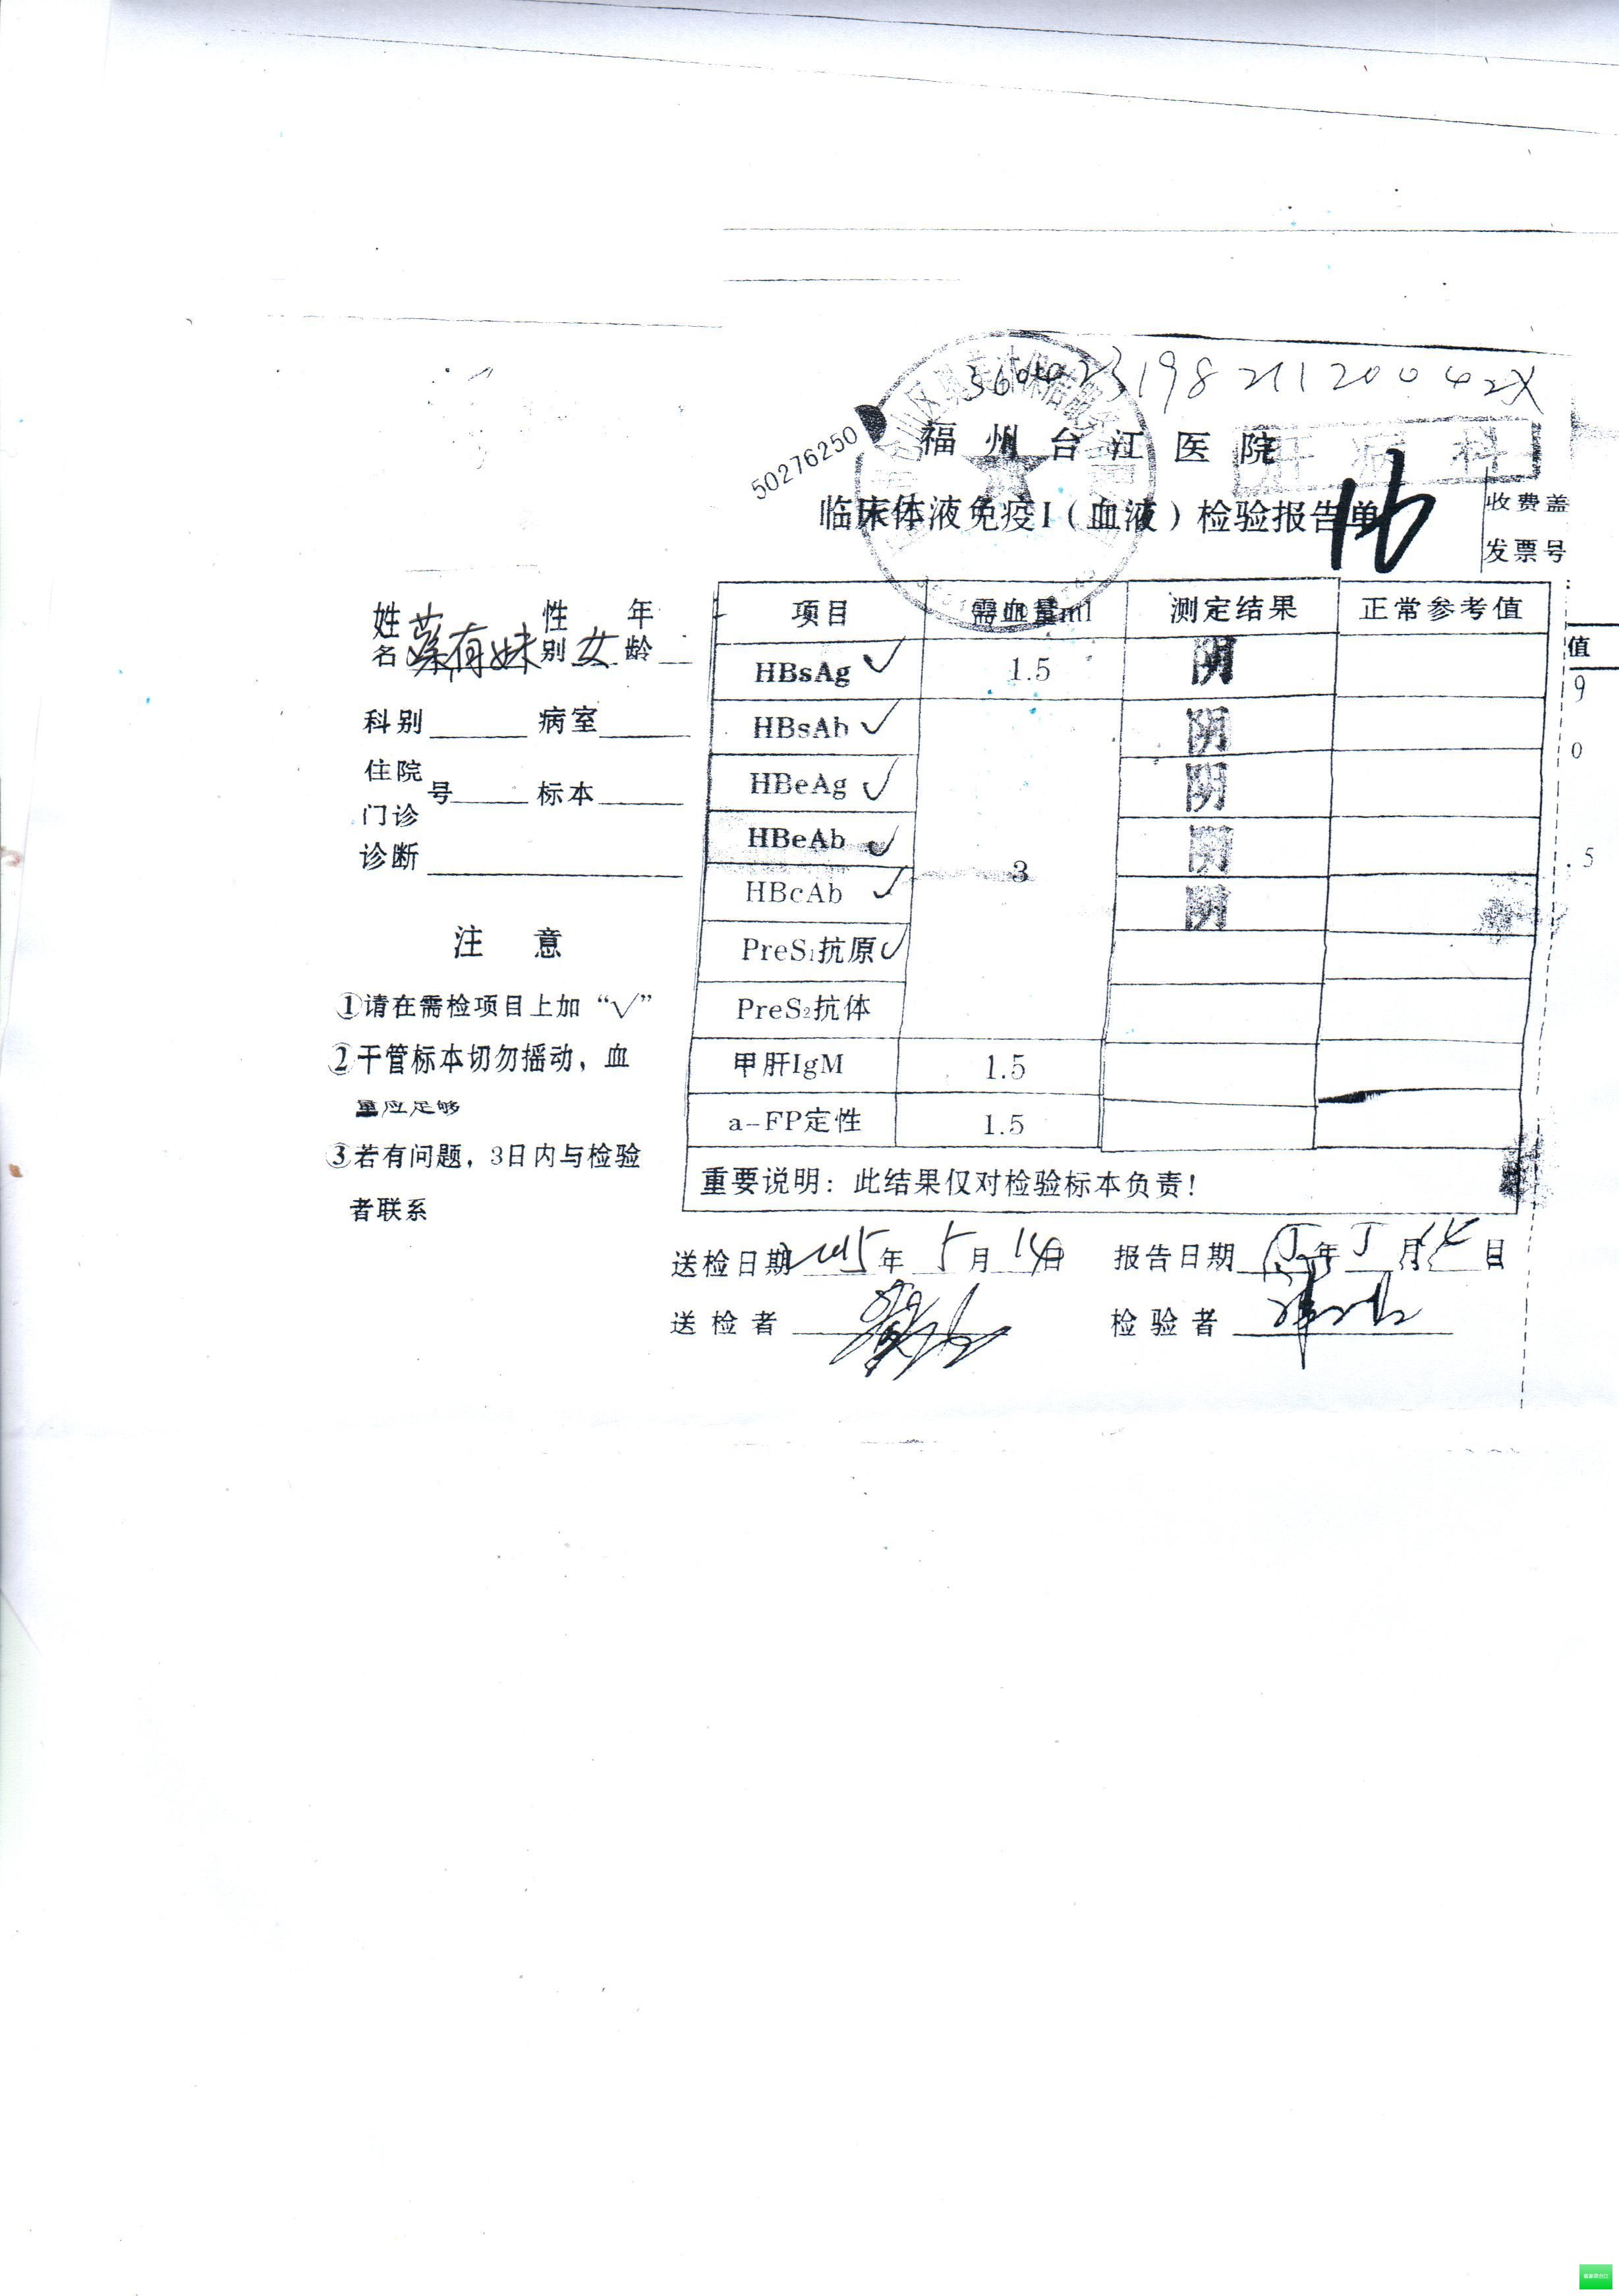 50276250
福州台江医院
肝病科
临床体液免疫I（血液）检验报告单
16
收费盖
发票号
姓名 蔡有妹 性别 女 年龄
科别 病室
住院门诊号 标本
诊断
注 意
①请在需检项目上加“√”
②干管标本切勿摇动，血
量应足够
③若有问题，3日内与检验
者联系
项目 需血量ml 测定结果 正常参考值
HBsAg ✓ 1.5 阴
HBsAb ✓ 阴
HBeAg ✓ 阴
HBeAb ✓ 3 阴
HBcAb ✓ 阴
PreS₁抗原 ✓
PreS₂抗体
甲肝IgM 1.5
a-FP定性 1.5
重要说明：此结果仅对检验标本负责！
送检日期 2015年 5月 14日 报告日期 年 5月 14日
送检者 检验者
值
9
0
.5